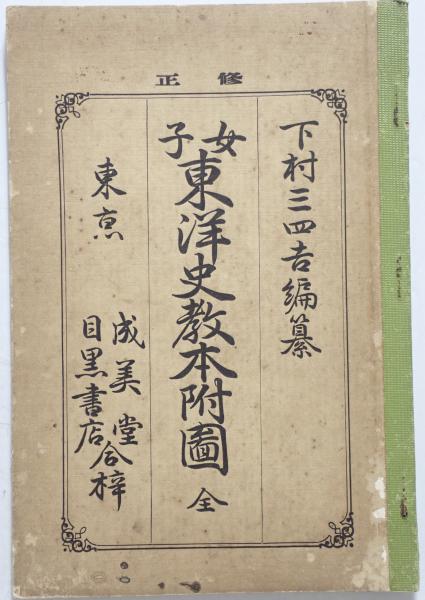 修正
下村三四吉編纂
女子
東洋史教本附圖 全
東亰
成美堂
目黒書店
合梓